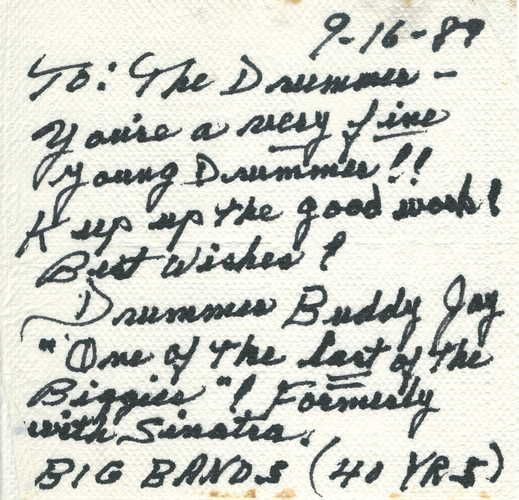 9-16-89
To: The Drummer -
You're a very fine
Young Drummer!!
Keep up the good work!
Best Wishes!
Drummer Buddy Jay
"One of the last of the
Biggies"! Formerly
with Sinatra.
BIG BANDS (40 YRS)